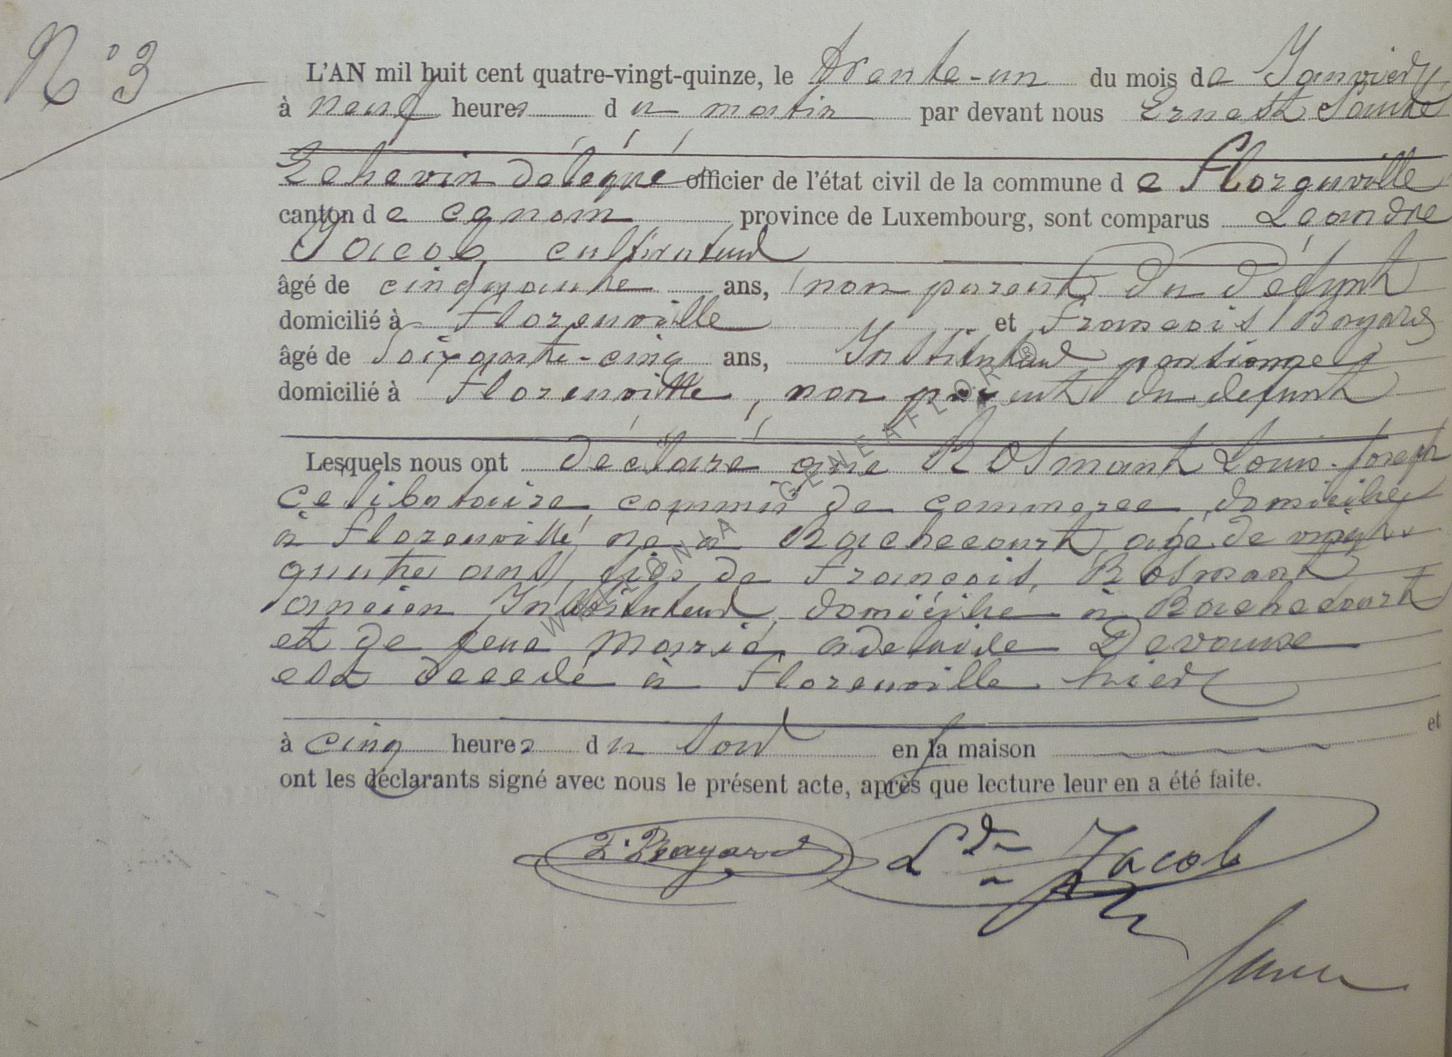 N° 3
L'AN mil huit cent quatre-vingt-quinze, le trente-un du mois de Janvier,
à neuf heures du matin par devant nous Ernest
Echevin délégué officier de l'état civil de la commune de Florenville
canton de province de Luxembourg, sont comparus Léandre
Jacob, cultivateur
âgé de cinquante ans, non parent du défunt
domicilié à Florenville et François Bayard
âgé de Soixante-cinq ans, Instituteur pensionné
domicilié à Florenville, non parent du défunt
Lesquels nous ont déclaré que Rosmant Louis-Joseph
celibataire, commis de commerce domicilié
à Florenville, né à Rachecourt, agé de vingt
quatre ans, fils de François, Rosmant
ancien Instituteur, domicilié à Rachecourt
et de feue Marie, adelaide Devaux
est décedé à Florenville hier
à cinq heures du soir en la maison et
ont les déclarants signé avec nous le présent acte, après que lecture leur en a été faite.
F. Bayard Ldre Jacob
WALLONIA GENEAFLOR